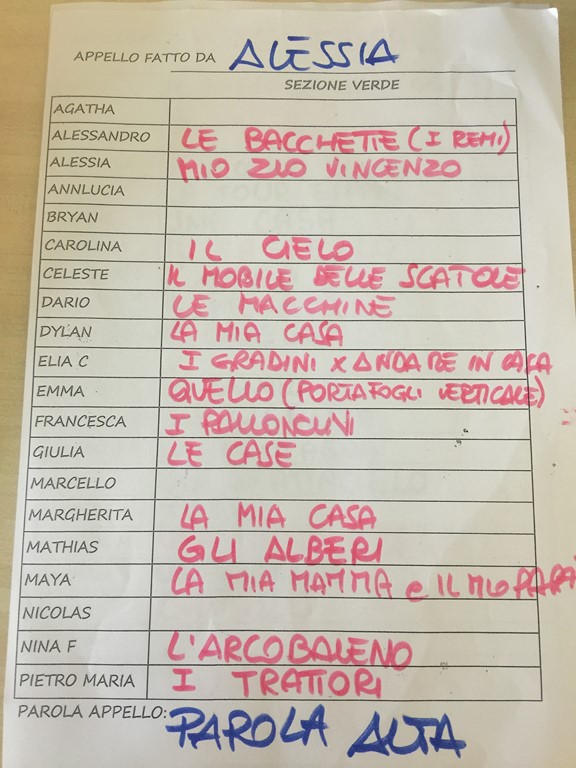 APPELLO FATTO DA ALESSIA
SEZIONE VERDE
AGATHA
ALESSANDRO LE BACCHETTE (I REMI)
ALESSIA MIO ZIO VINCENZO
ANNLUCIA
BRYAN
CAROLINA IL CIELO
CELESTE IL MOBILE DELLE SCATOLE
DARIO LE MACCHINE
DYLAN LA MIA CASA
ELIA C I GRADINI X ANDARE IN CASA
EMMA QUELLO (PORTAFOGLI VERTICALE)
FRANCESCA I PALLONCINI
GIULIA LE CASE
MARCELLO
MARGHERITA LA MIA CASA
MATHIAS GLI ALBERI
MAYA LA MIA MAMMA e IL MIO PAPA'
NICOLAS
NINA F L'ARCOBALENO
PIETRO MARIA I TRATTORI
PAROLA APPELLO: PAROLA ALTA